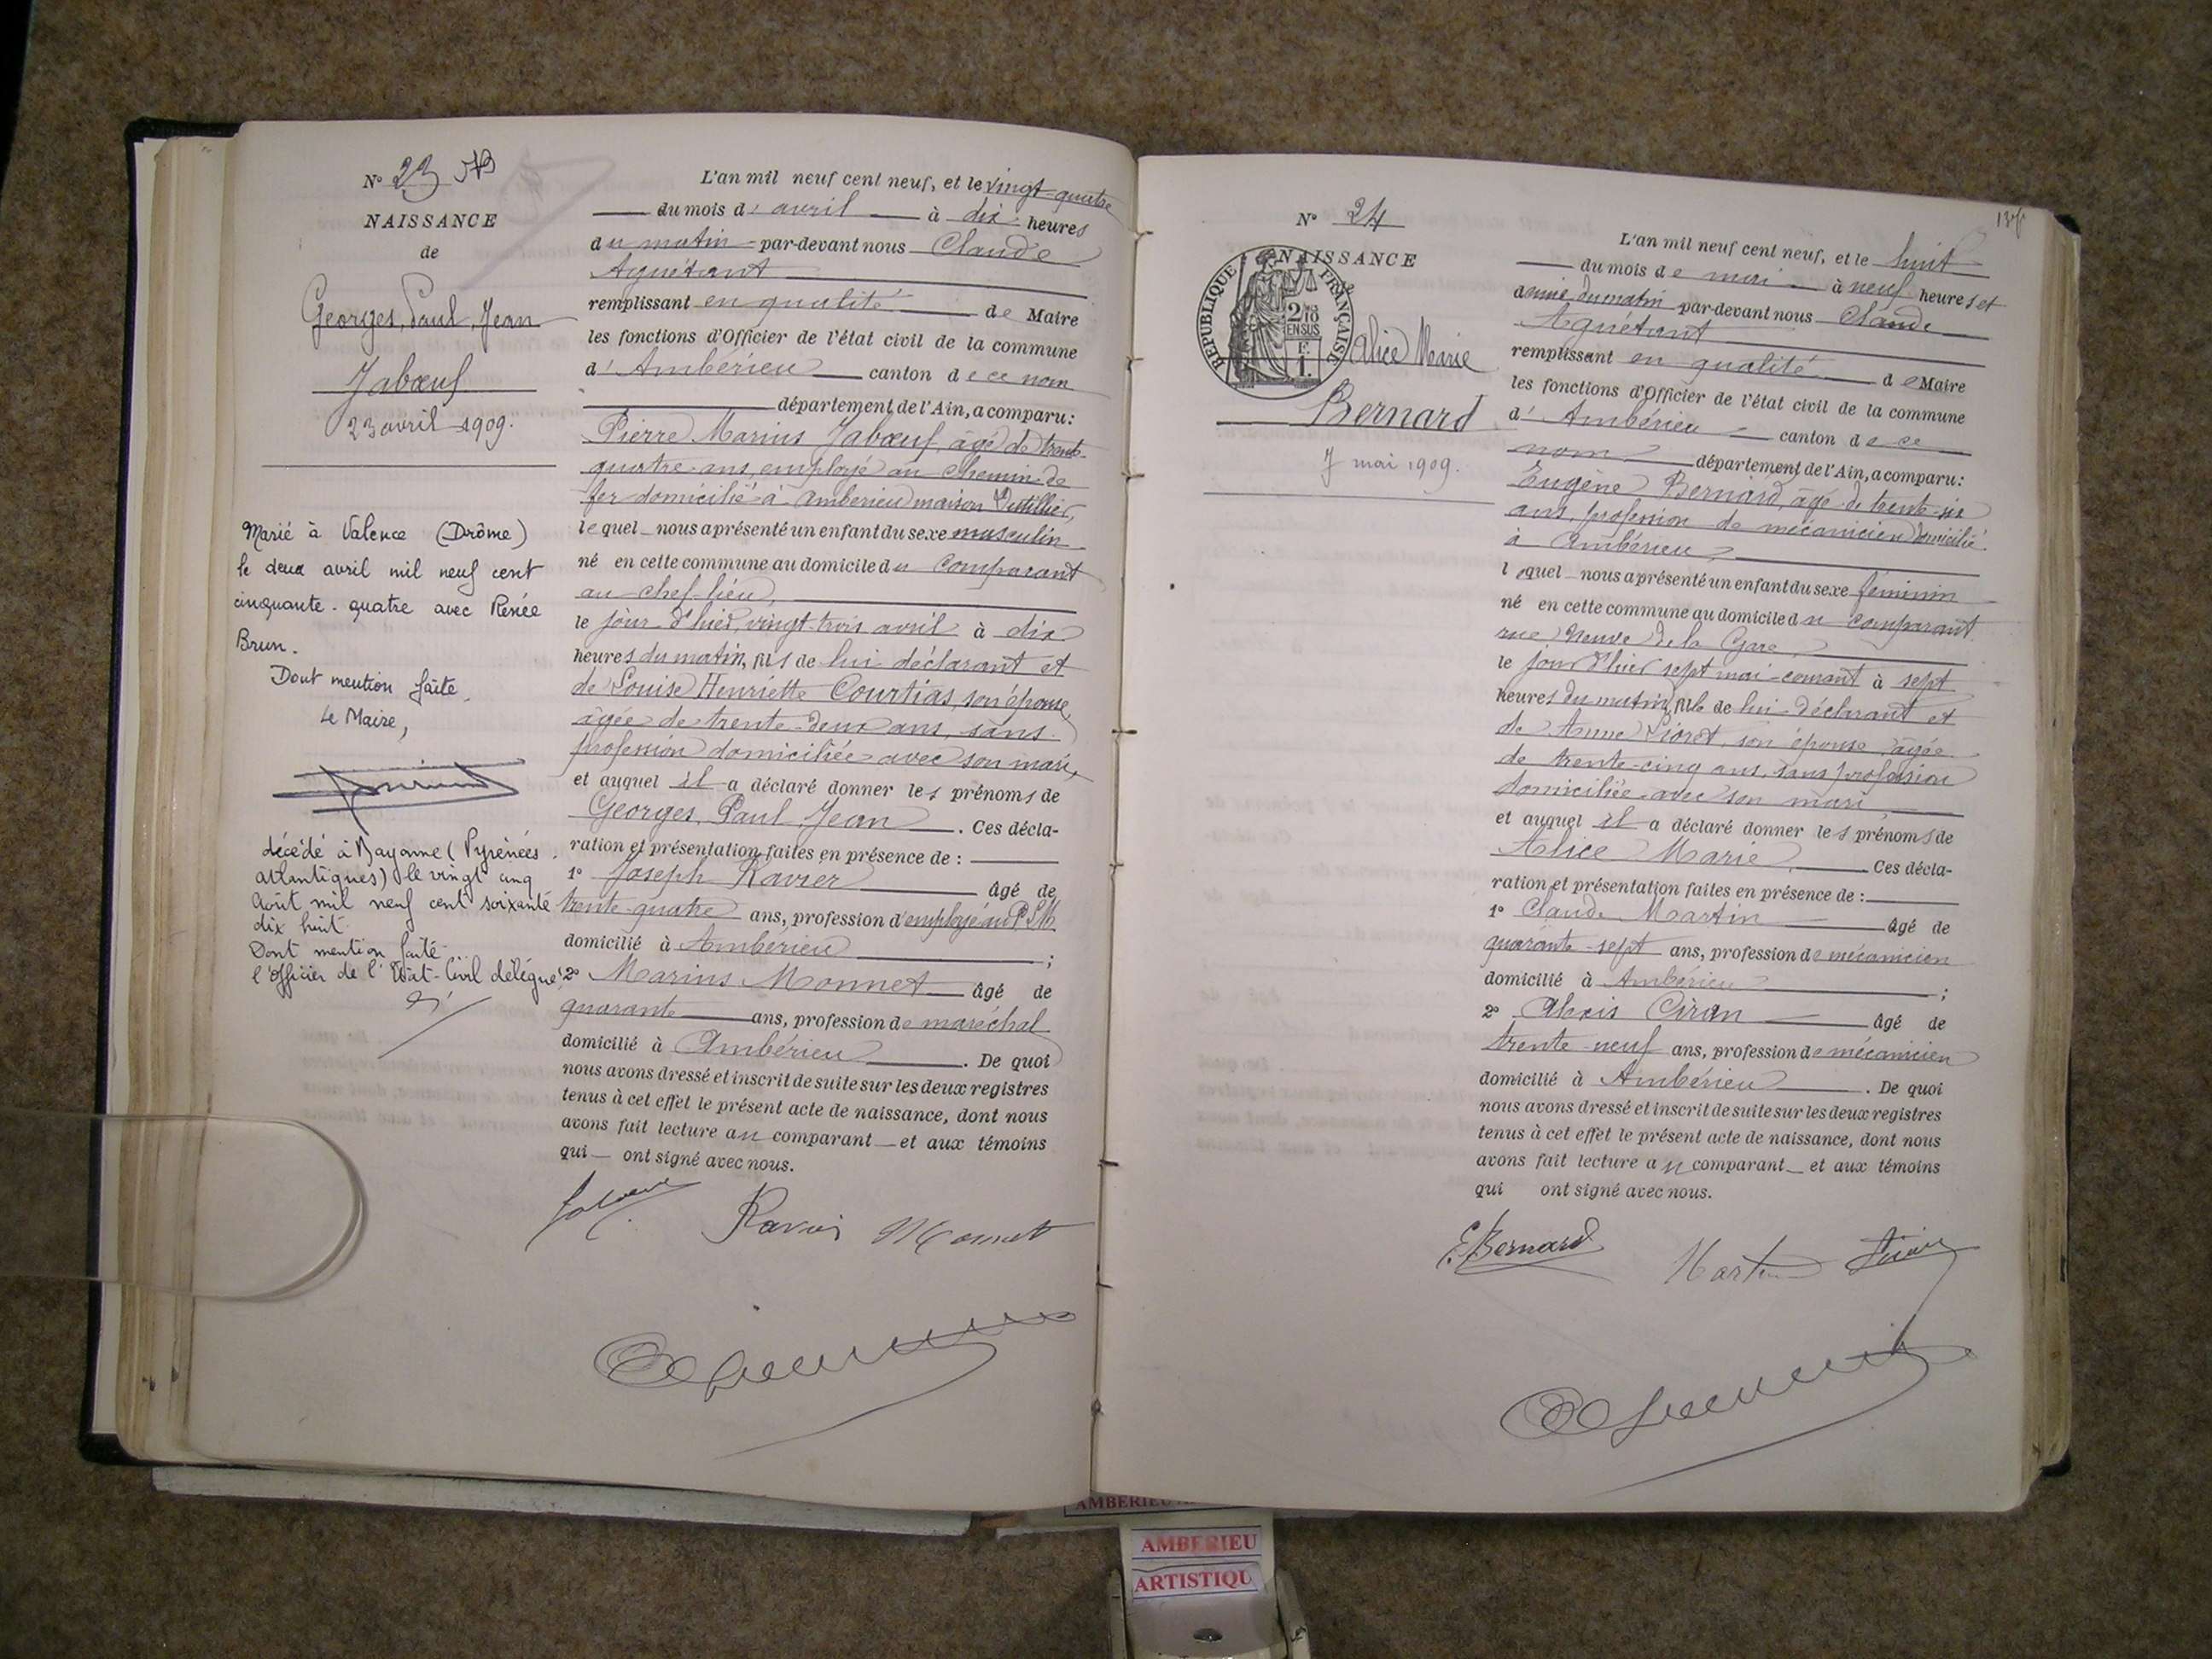 N° 23
NAISSANCE
de
Georges, Paul, Jean
Jabœuf
23 avril 1909.
Marié à Valence (Drôme)
le deux avril mil neuf cent
cinquante-quatre avec Renée
Brun.
Dont mention faite.
Le Maire,
décédé à Bayonne (Pyrénées
atlantiques) le vingt cinq
Août mil neuf cent soixante
dix huit
Dont mention faite
l'Officier de l'Etat-Civil délégué
L'an mil neuf cent neuf, et le vingt-quatre
du mois d'avril à dix heures
du matin par-devant nous Claude
Aguétant
remplissant en qualité de Maire
les fonctions d'Officier de l'état civil de la commune
d'Ambérieu canton de ce nom
département de l'Ain, a comparu:
Pierre Marius Jabœuf, âgé de trente-
quatre ans, employé au Chemin de
fer domicilié à Ambérieu maison
lequel nous a présenté un enfant du sexe masculin
né en cette commune au domicile du Comparant
au chef-lieu,
le jour d'hier, vingt-trois avril à dix
heures du matin, fils de lui déclarant et
de Louise Henriette Courtias, son épouse,
âgée de trente-deux ans, sans
profession domiciliée avec son mari,
et auquel il a déclaré donner les prénoms de
Georges, Paul, Jean. Ces décla-
ration et présentation faites en présence de :
1° Joseph Ravier âgé de
trente-quatre ans, profession d'employé au
domicilié à Ambérieu ;
2° Marius Monnet âgé de
quarante ans, profession de maréchal
domicilié à Ambérieu. De quoi
nous avons dressé et inscrit de suite sur les deux registres
tenus à cet effet le présent acte de naissance, dont nous
avons fait lecture au comparant et aux témoins
qui ont signé avec nous.
Ravier Monnet
N° 24
NAISSANCE
RÉPUBLIQUE FRANÇAISE
2/10
EN SUS
F.
1.
Alice Marie
Bernard
7 mai 1909.
L'an mil neuf cent neuf, et le huit
du mois de mai à neuf heures et
demie du matin par-devant nous Claude
Aguétant
remplissant en qualité de Maire
les fonctions d'Officier de l'état civil de la commune
d'Ambérieu canton de ce
nom département de l'Ain, a comparu:
Eugène Bernard, âgé de trente-six
ans, profession de mécanicien domicilié
à Ambérieu
lequel nous a présenté un enfant du sexe féminin
né en cette commune au domicile du comparant
rue Neuve de la Gare,
le jour d'hier sept mai courant à sept
heures du matin, fille de lui déclarant et
de Anne son épouse, âgée
de trente-cinq ans, sans profession
domiciliée avec son mari
et auquel il a déclaré donner les prénoms de
Alice Marie. Ces décla-
ration et présentation faites en présence de :
1° Claude Martin âgé de
quarante-sept ans, profession de mécanicien
domicilié à Ambérieu ;
2° Alexis âgé de
trente-neuf ans, profession de mécanicien
domicilié à Ambérieu. De quoi
nous avons dressé et inscrit de suite sur les deux registres
tenus à cet effet le présent acte de naissance, dont nous
avons fait lecture au comparant et aux témoins
qui ont signé avec nous.
E. Bernard Martin
AMBERIEU
AMBERIEU
ARTISTIQU